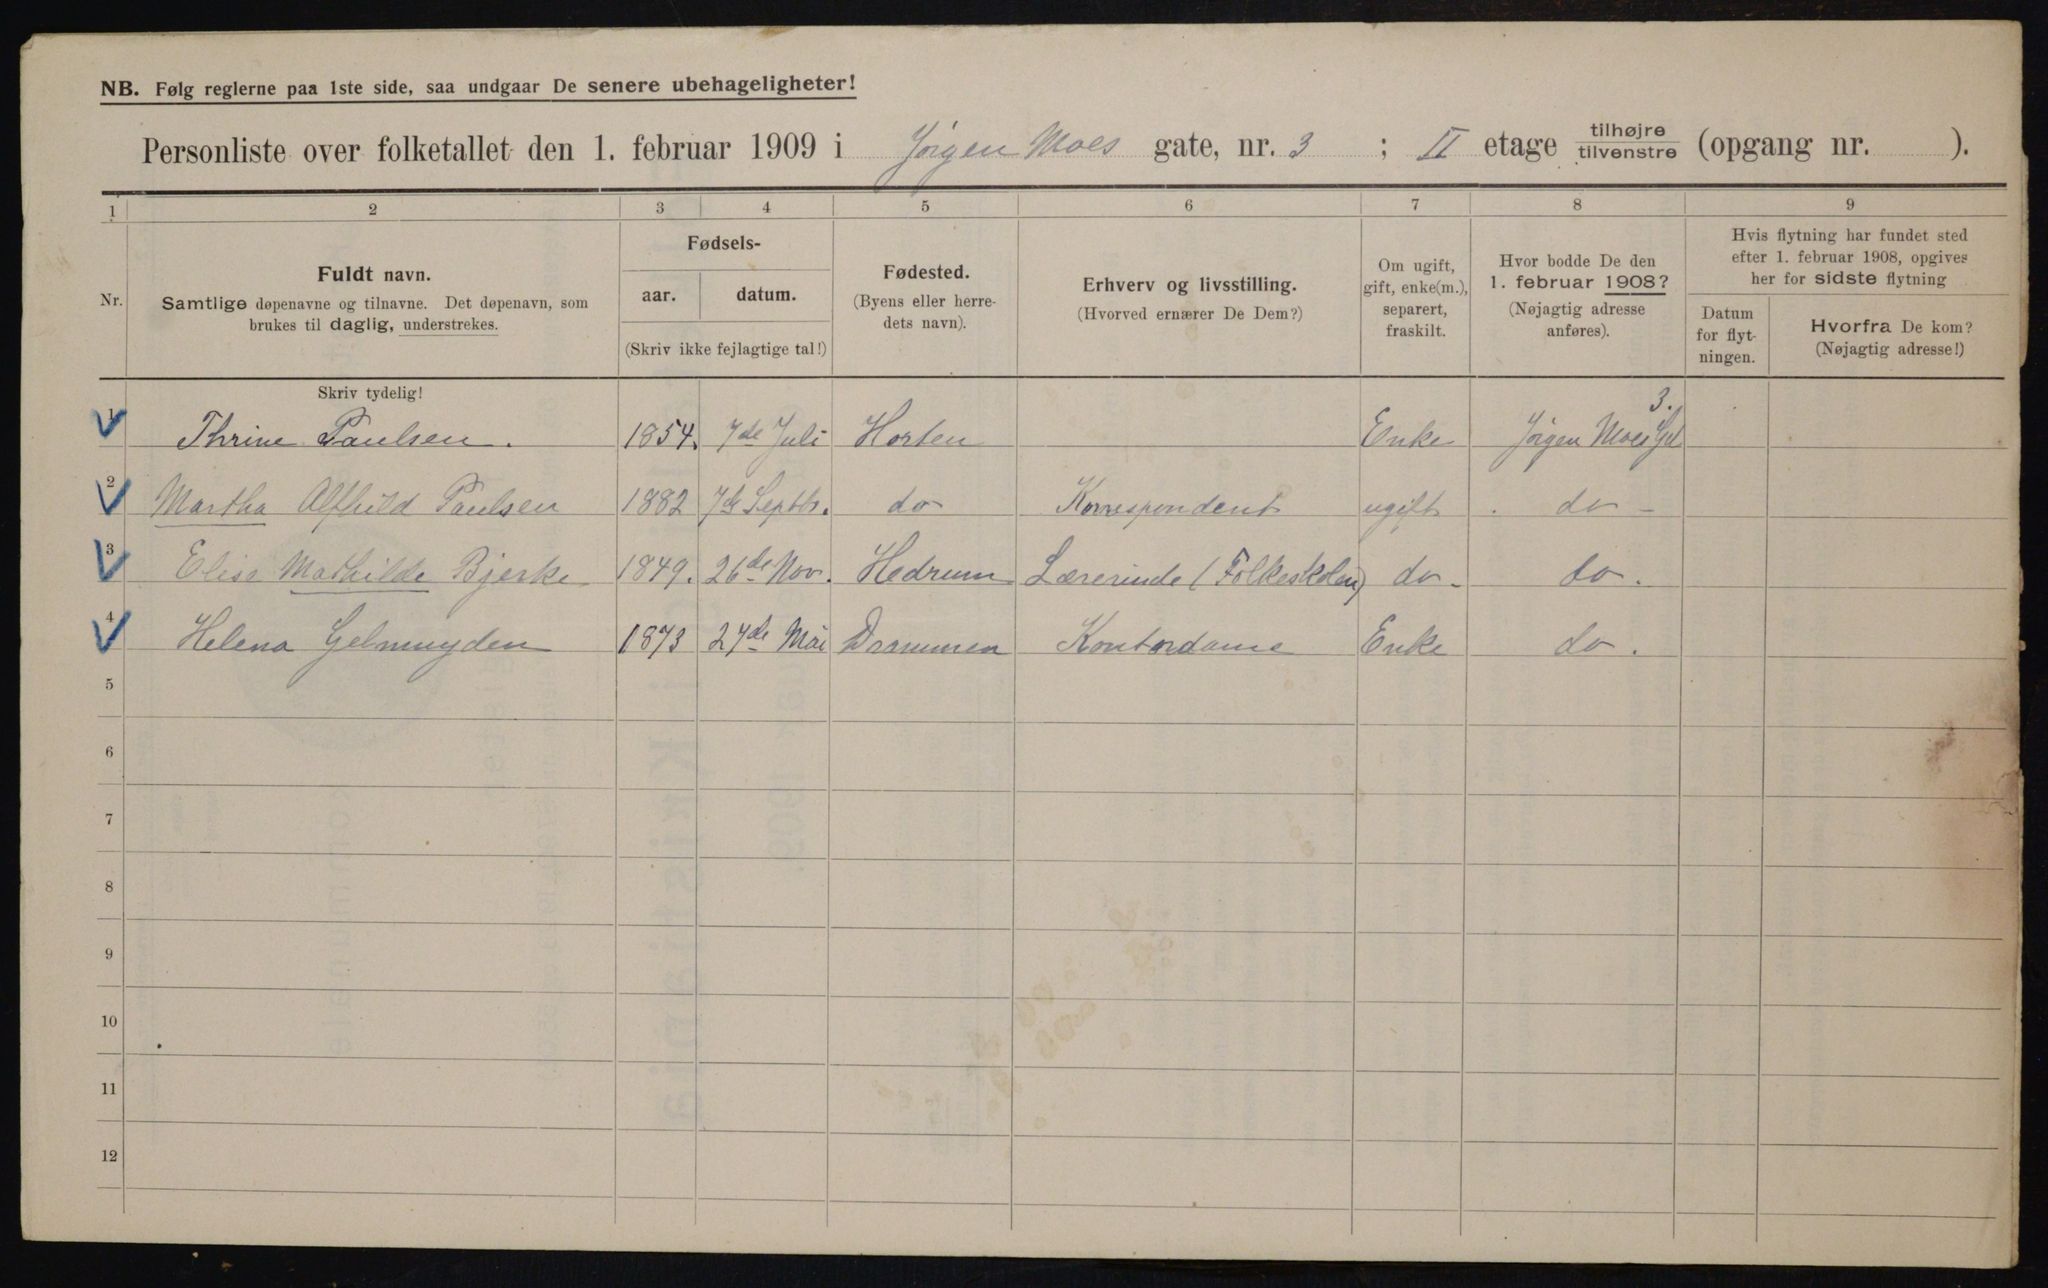 NB. Følg reglerne paa 1ste side, saa undgaar De senere ubehageligheter!
Personliste over folketallet den 1. februar 1909 i Jørgen Moes gate, nr. 3 ; II etage tilhøjre tilvenstre (opgang nr. ).
1 2 3 4 5 6 7 8 9
Nr.
Fuldt navn.
Samtlige døpenavne og tilnavne. Det døpenavn, som
brukes til daglig, understrekes.
Fødsels-
aar. datum.
(Skriv ikke fejlagtige tal!)
Fødested.
(Byens eller herre-
dets navn).
Erhverv og livsstilling.
(Hvorved ernærer De Dem?)
Om ugift,
gift, enke(m.),
separert,
fraskilt.
Hvor bodde De den
1. februar 1908?
(Nøjagtig adresse
anføres).
Hvis flytning har fundet sted
efter 1. februar 1908, opgives
her for sidste flytning
Datum
for flyt-
ningen.
Hvorfra De kom?
(Nøjagtig adresse!)
Skriv tydelig!
3.
1 Thrine Paulsen. 1854. 7de Juli Horten Enke Jørgen Moes Gd
2 Martha Alfhild Paulsen 1882 7de Septbr. do Korrespondent ugift do -
3 Elise Mathilde Bjerke 1849. 26de Nov. Hedrum Lærerinde (Folkeskolen) do - do.
4 Helena Gelmuyden 1873 27de Mai Drammen Kontordame Enke do.
5
6
7
8
9
10
11
12